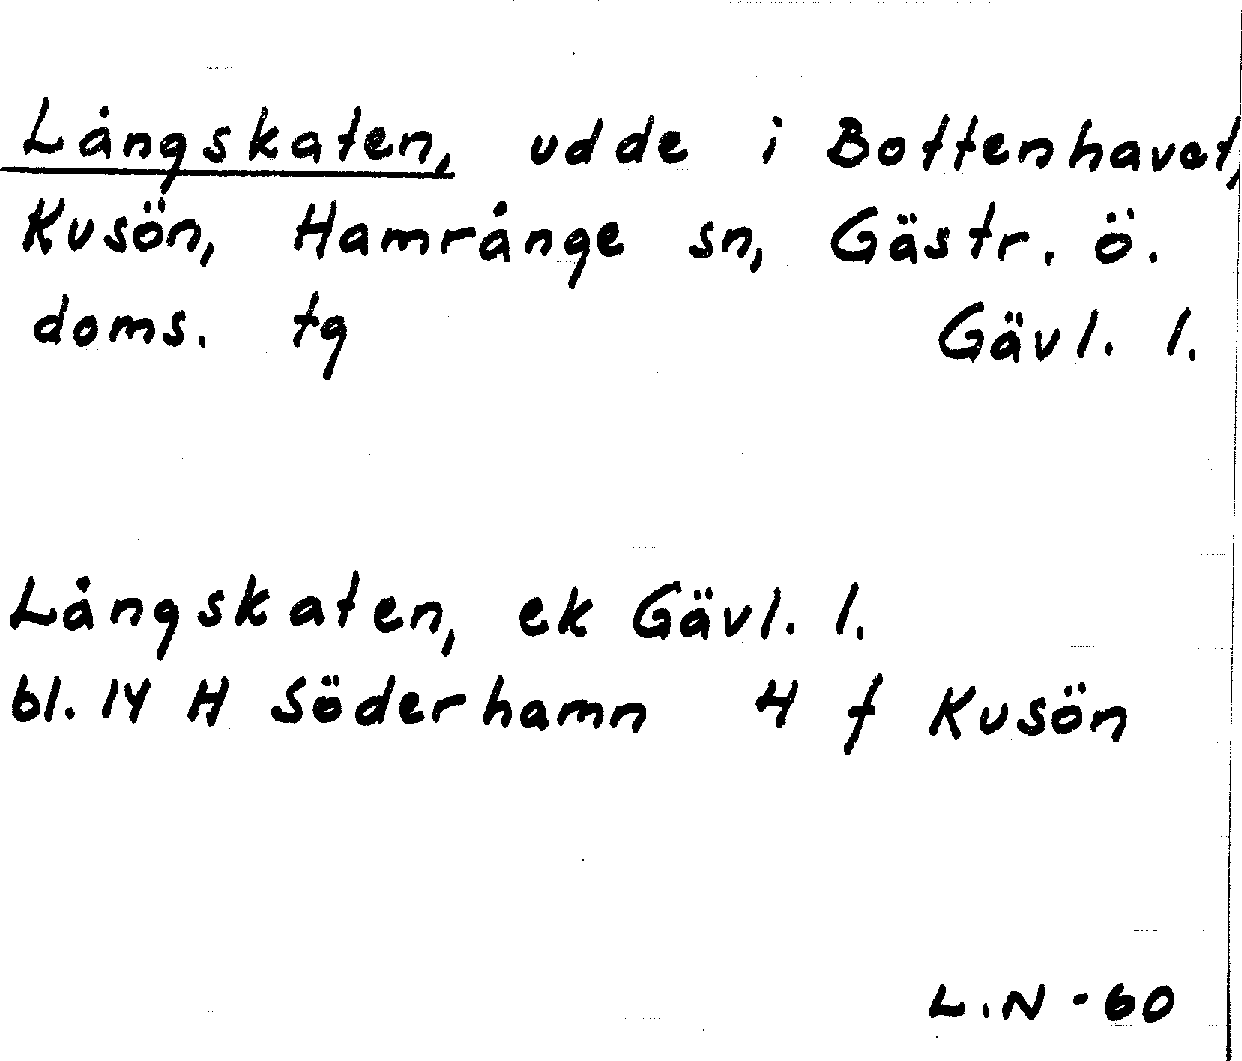 Långskaten, udde i Bottenhavet,
Kusön, Hamrånge sn, Gästr. ö.
doms. tg Gävl. l.
Långskaten, ek Gävl. l.
bl. 14 H Söderhamn 4 f Kusön
L.N - 60